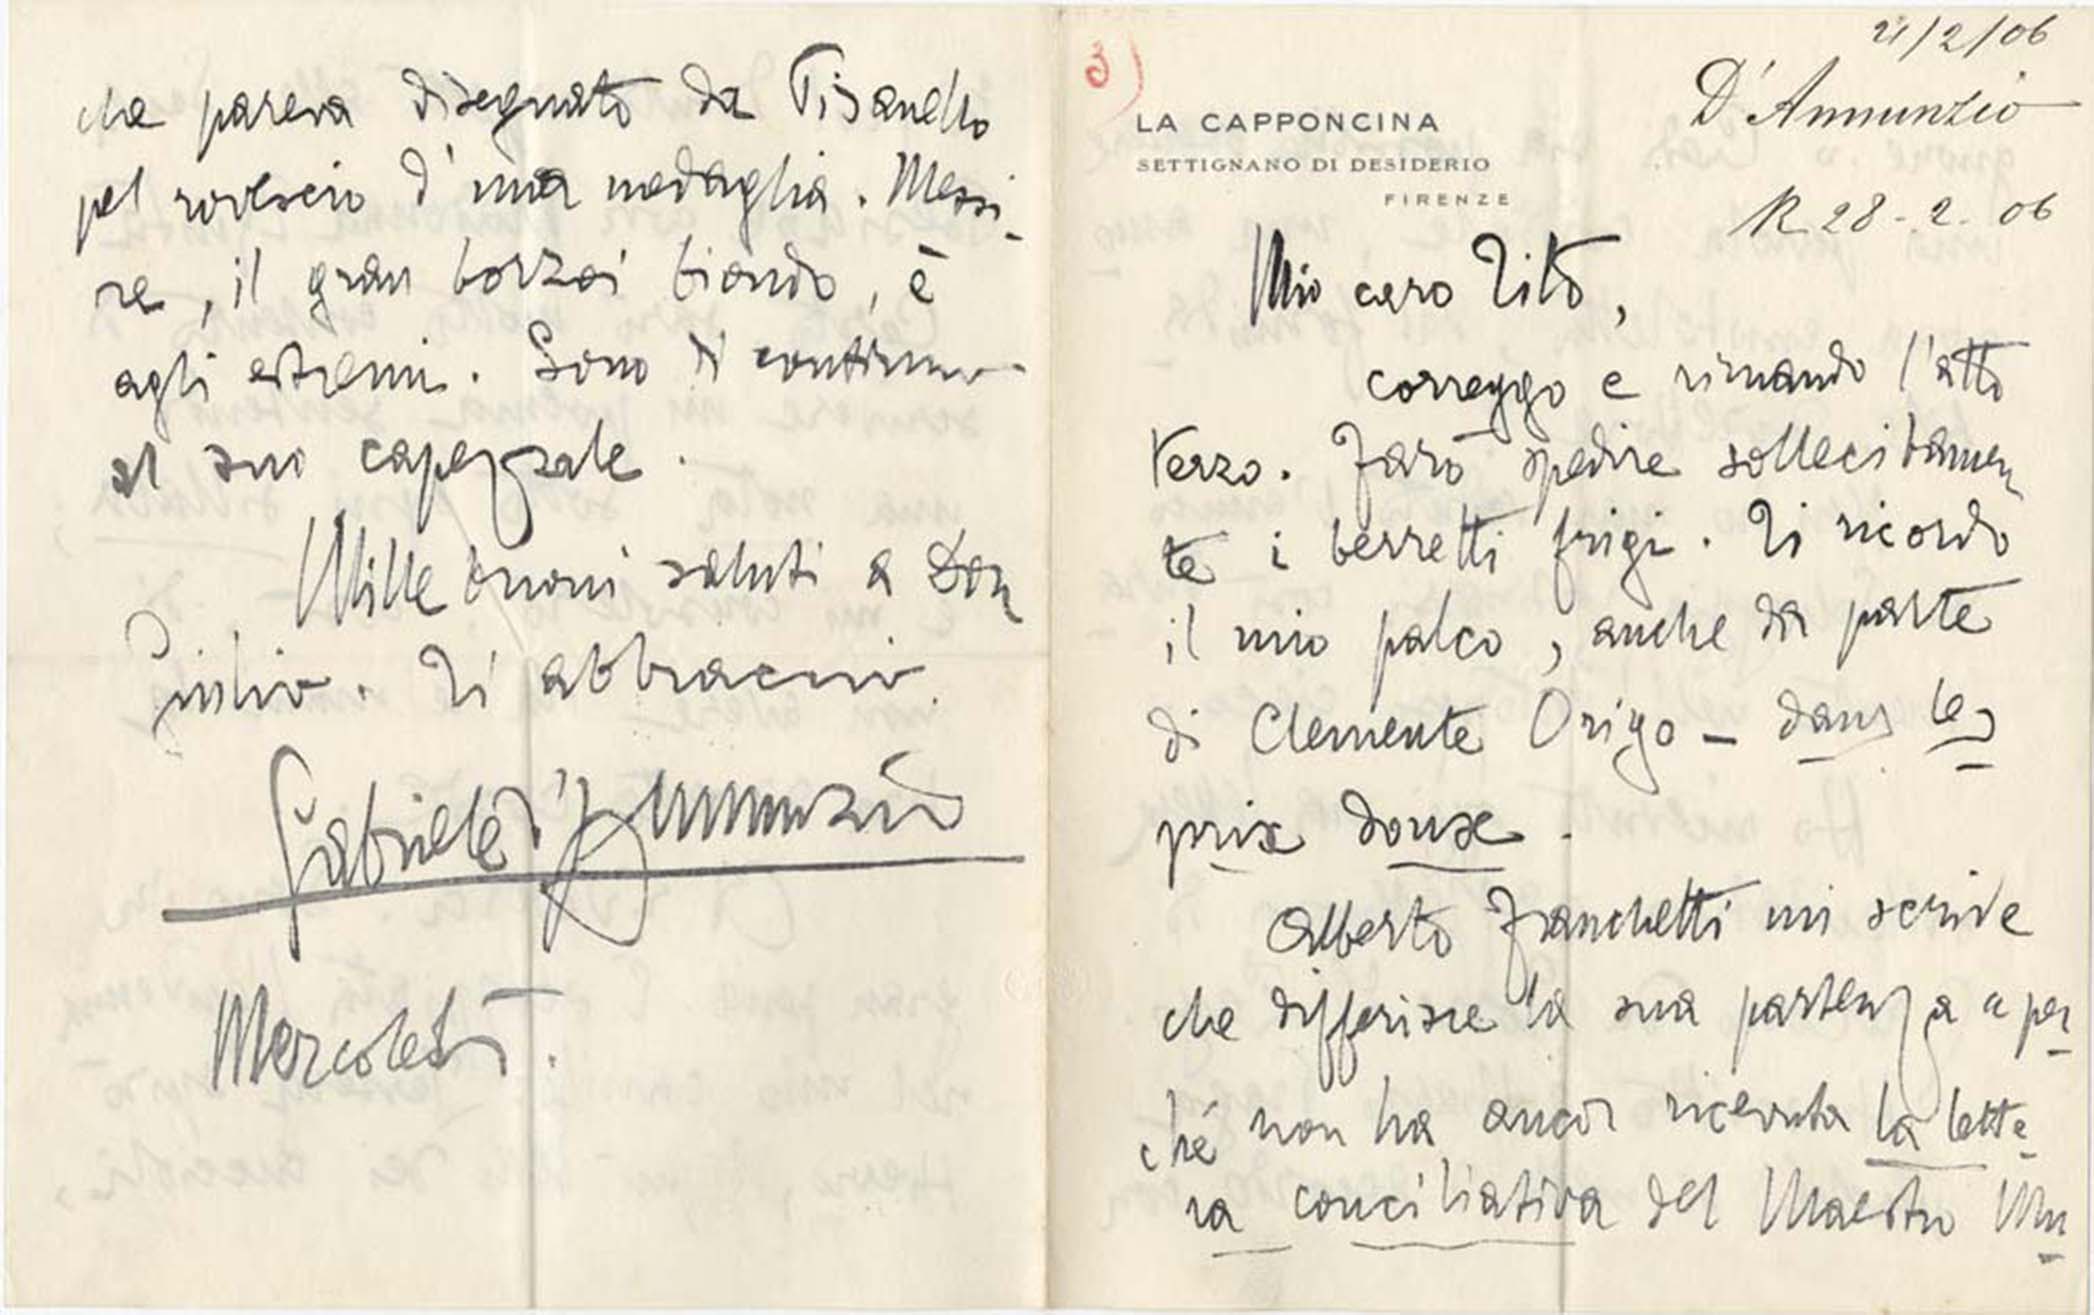 3)
21/2/06
D'Annunzio
R 28-2-06
LA CAPPONCINA
SETTIGNANO DI DESIDERIO
FIRENZE
Mio caro Tito,
correggo e rimando l'atto
terzo. Farò spedire sollecitamen
te i berretti frigi. Ti ricordo
il mio palco, anche da parte
di Clemente Origo — dans les
prix doux.
Alberto Franchetti mi scrive
che differisce la sua partenza "per
ché non ha ancor ricevuta la lette
ra conciliativa del Maestro Mu
che pareva disegnato da Pisanello
pel rovescio d'una medaglia. Messi-
re, il gran borzoi biondo, è
agli estremi. Sono di continuo
al suo capezzale.
Mille buoni saluti a Don
Giulio. Ti abbraccio.
Gabriele d'Annunzio
Mercoledì.